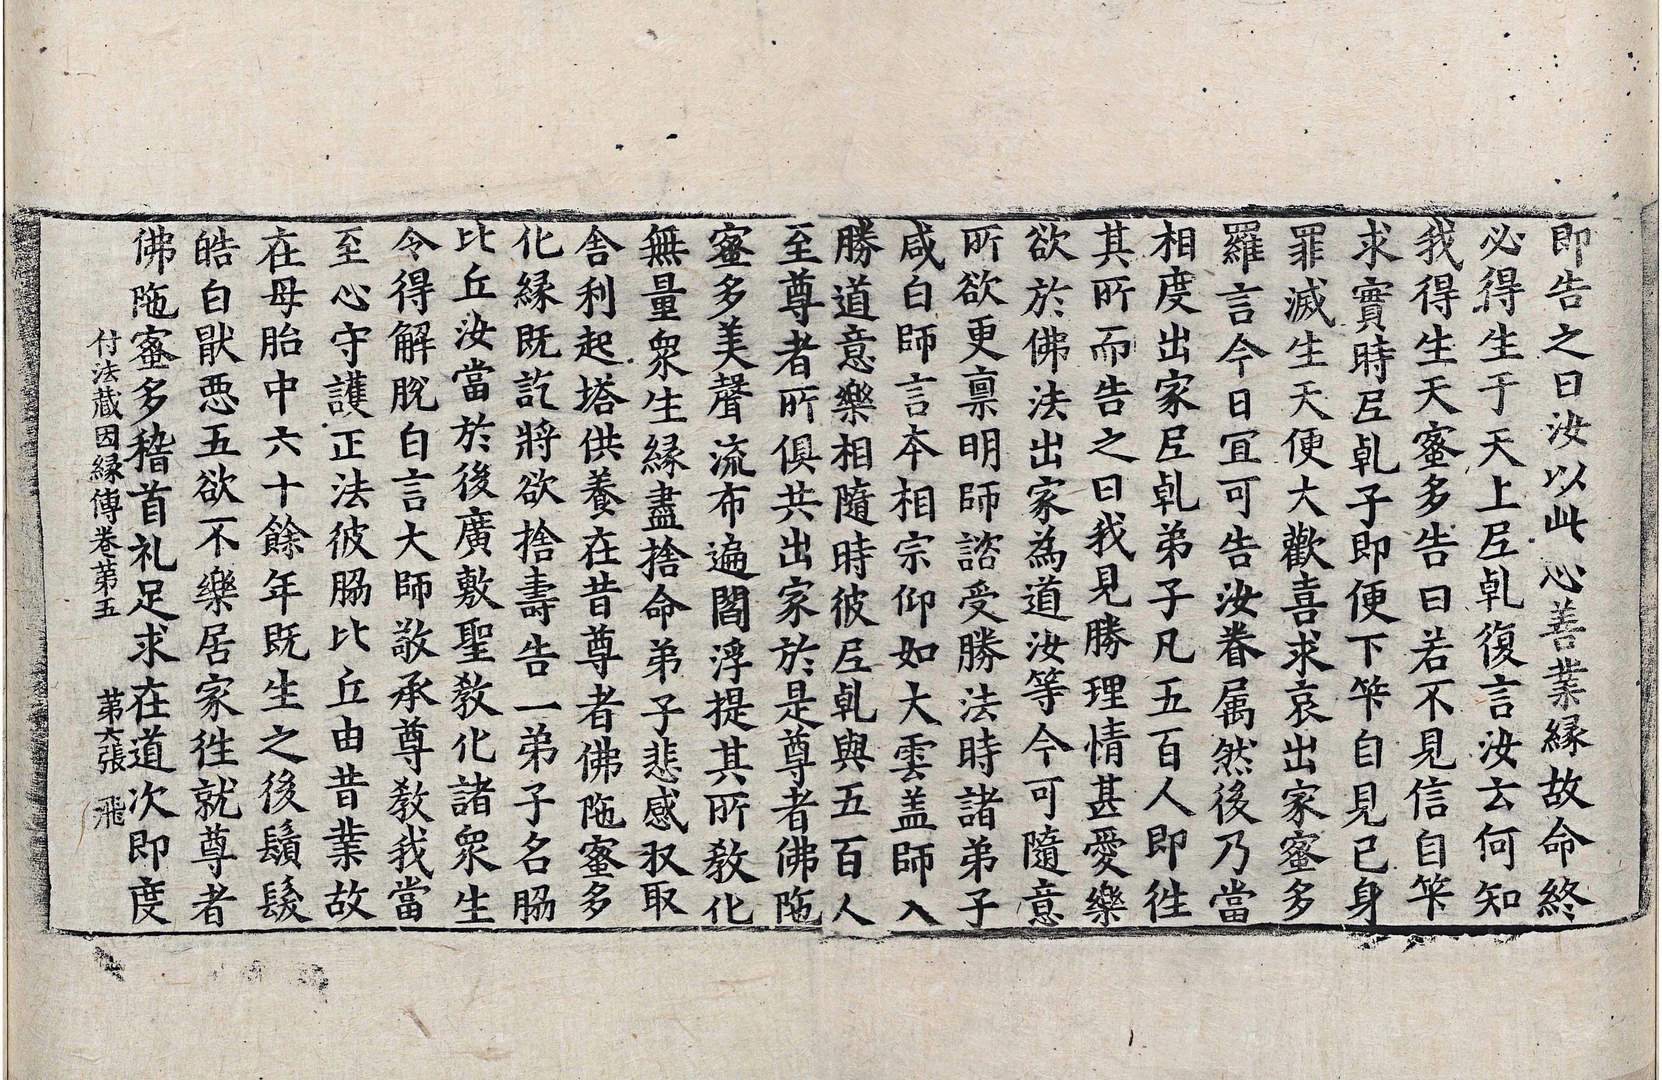 即告之曰汝以此心善業緣故命終
必得生于天上尼乹復言汝云何知
我得生天蜜多告曰若不見信自筭
求實時尼乹子即便下筭自見已身
罪滅生天便大歡喜求哀出家蜜多
羅言今日宜可告汝眷属然後乃當
相度出家尼乹弟子凡五百人即徃
其所而告之曰我見勝理情甚愛樂
欲於佛法出家為道汝等今可隨意
所欲更禀明師諮受勝法時諸弟子
咸白師言本相宗仰如大雲盖師入
勝道意樂相隨時彼尼乹與五百人
至尊者所俱共出家於是尊者佛陁
蜜多美聲流布遍閻浮提其所教化
無量衆生緣盡捨命弟子悲感収取
舎利起塔供養在昔尊者佛陁蜜多
化縁既訖將欲捨壽告一弟子名脇
比丘汝當於後廣敷聖教化諸衆生
令得解脫白言大師敬承尊教我當
至心守護正法彼脇比丘由昔業故
在母胎中六十餘年既生之後鬚髮
皓白猒惡五欲不樂居家徃就尊者
佛陁蜜多稽首礼足求在道次即度
付法蔵因縁傳卷苐五 苐六張 飛